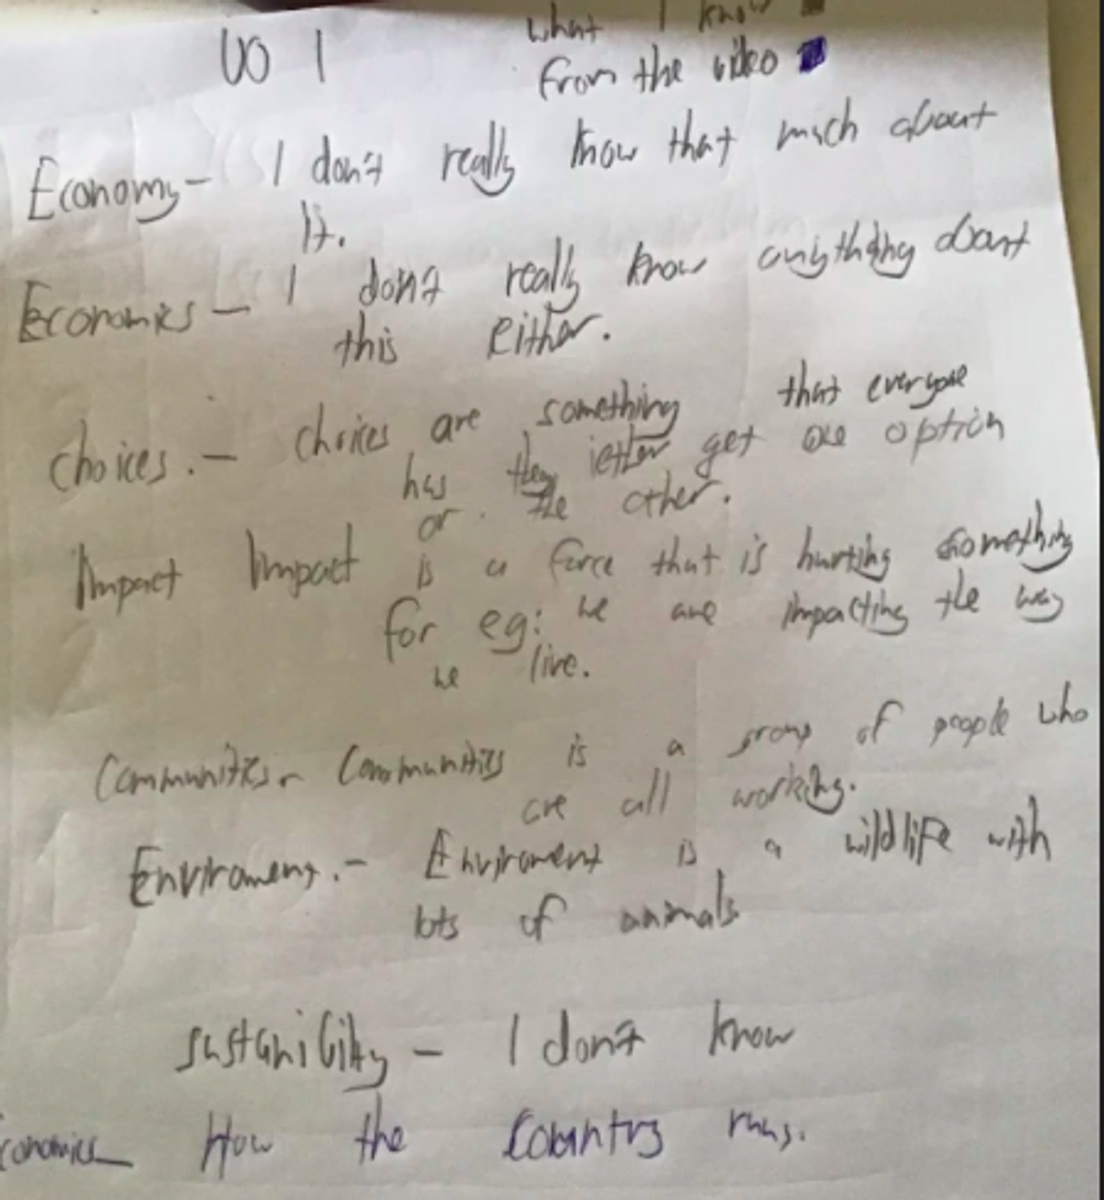 WO 1
what I know
from the video
Economy - I don't really know that much about
It.
Economics - I don't really know anything about
this either.
choices. - choices are something that everyone
has they iether get one option
or the other.
Impact Impact is a force that is hurting something
for eg: we are impacting the way
we live.
Communities - Communities is a group of people who
are all working.
Enviroment. - Enviroment is a wildlife with
lots of animals
sustanibility - I don't know
Economics How the Country runs.